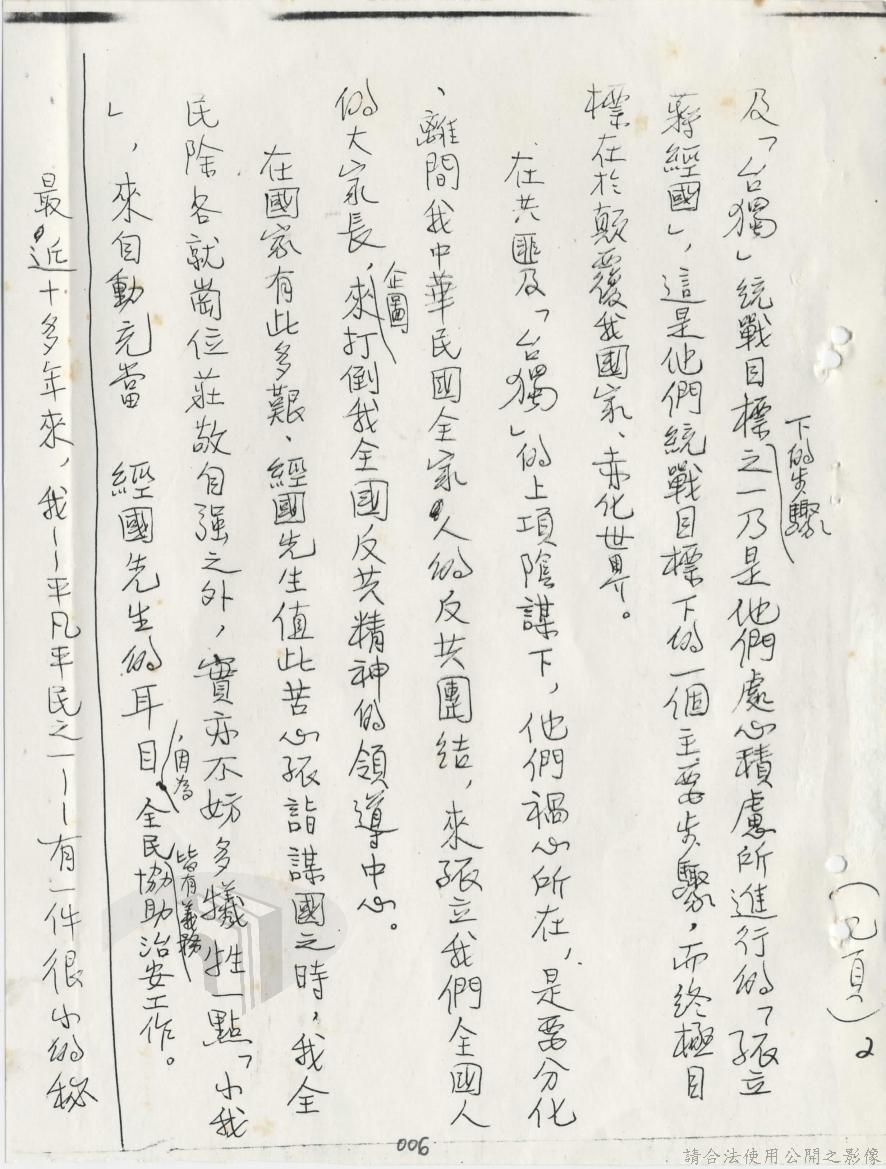 (乙頁) 2
及「台獨」統戰目標之一乃是他們處心積慮所進行的「孤立
下的步驟
蔣經國」,這是他們統戰目標下的一個主要步驟,而終極目
標在於顛覆我國家、赤化世界。
在共匪及「台獨」的上項陰謀下,他們禍心所在,是要分化
、離間我中華民國全家人的反共團結,來孤立我們全國人
的大家長,來打倒我全國反共精神的領導中心。
企圖
在國家有此多艱、經國先生值此苦心孤詣謀國之時,我全
民除各就崗位莊敬自强之外,實亦不妨多犧牲一點「小我
」,來自動充當 經國先生的耳目,全民協助治安工作。
因為
皆有義務
最近十多年來,我——平凡平民之一——有一件很小的秘
006
請合法使用公開之影像